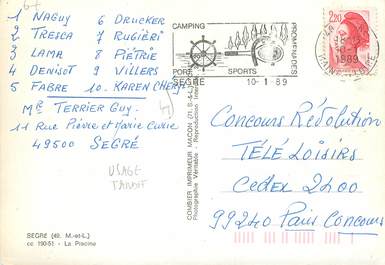 67
1 NAGUY 6 DRUCKER
2 TRESCA 7 RUGIÈRI
3 LAMA 8 PIÉTRIE
4 DENISOT 9 VILLERS
5 FABRE 10. KAREN CHERYL
Mr TERRIER Guy.
11 Rue Pierre et Marie Curie
49500 SEGRÉ
USAGE
TARDIF
SEGRÉ (49. M.-et-L.)
cc 190-51 - La Piscine
CAMPING
PROMENADES
PORT
SPORTS
SEGRE 10-1-89
COMBIER IMPRIMEUR MACON (71. S.-&-L.)
Photographie Véritable - Reproduction
2,20
10-1
1989
MAINE
LOIRE
Concours Révolution
TÉLÉ LOISIRS
Cedex 2400
99240 Paris Concours